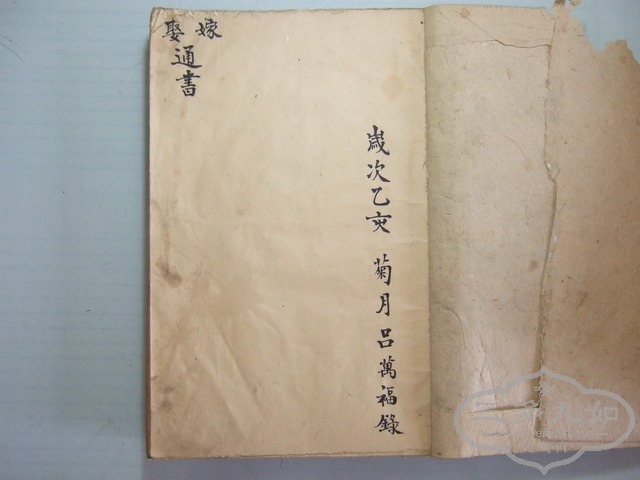 嫁娶
通書
歲次乙亥 菊月呂萬福錄